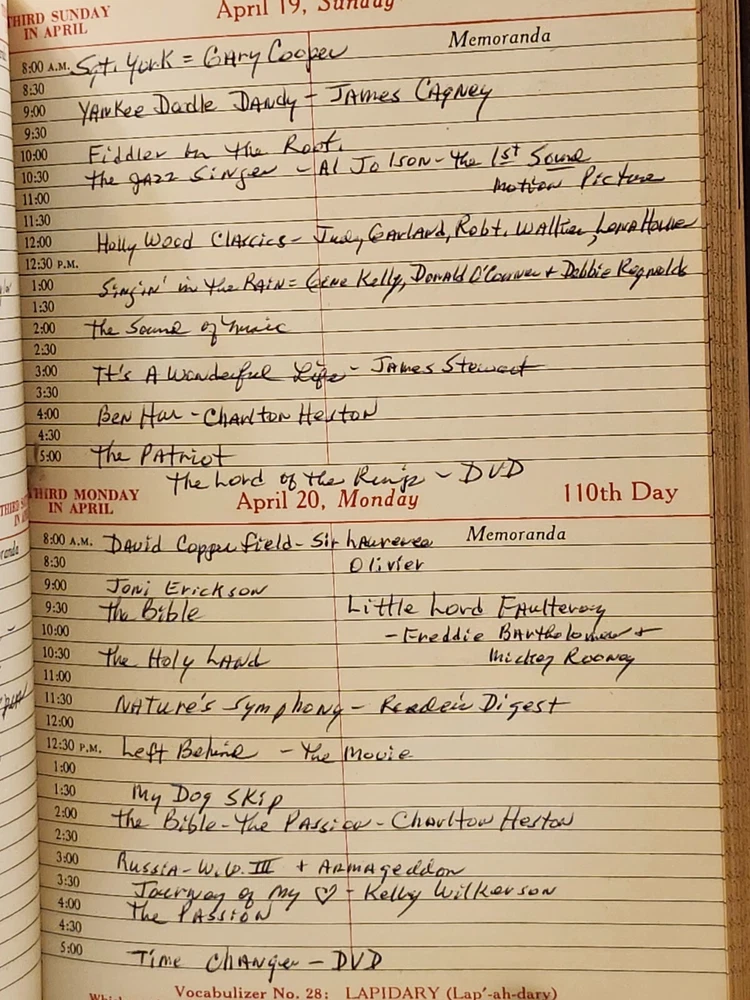 THIRD SUNDAY
IN APRIL
April 19, Sunday
Memoranda
8:00 A.M. Sgt. York = Gary Cooper
8:30
9:00 Yankee Dadle Dandy - James Cagney
9:30
10:00 Fiddler on the Roof.
10:30 the Jazz Singer - Al Jolson - the 1st Sound
Motion Picture
11:00
11:30
12:00 Holly Wood Classics - Judy Garland, Robt. Walker, Lena Horne
12:30 P.M.
1:00 Singin' in the Rain = Gene Kelly, Donald O'Conner + Debbie Reynolds
1:30
2:00 the Sound of Music
2:30
3:00 It's A Wonderful Life - James Stewart
3:30
4:00 Ben Hur - Charlton Heston
4:30
5:00 the Patriot
the Lord of the Rings - DVD
THIRD MONDAY
IN APRIL
April 20, Monday
110th Day
Memoranda
8:00 A.M. David Copperfield - Sir Laurence
8:30 Olivier
9:00 Joni Erickson
9:30 the Bible Little Lord Faulteroy
10:00 - Freddie Bartholomew +
10:30 the Holy Land Mickey Rooney
11:00
11:30 Nature's Symphony - Reader's Digest
12:00
12:30 P.M. Left Behind - the Movie
1:00
1:30 My Dog Skip
2:00 the Bible - the Passion - Charlton Heston
2:30
3:00 Russia - W.W. III + Armageddon
3:30 Journey of My ♡ - Kelly Wilkerson
4:00 the Passion
4:30
5:00 Time Changer - DVD
Vocabulizer No. 28: LAPIDARY (Lap'-ah-dary)